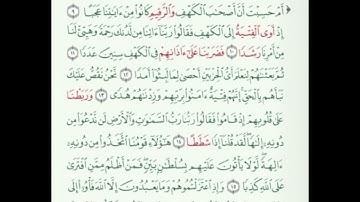 أَمْ حَسِبْتَ أَنَّ أَصْحَٰبَ ٱلْكَهْفِ وَٱلرَّقِيمِ كَانُوا۟ مِنْ ءَايَٰتِنَا عَجَبًا ٩
إِذْ أَوَى ٱلْفِتْيَةُ إِلَى ٱلْكَهْفِ فَقَالُوا۟ رَبَّنَآ ءَاتِنَا مِن لَّدُنكَ رَحْمَةً وَهَيِّئْ لَنَا
مِنْ أَمْرِنَا رَشَدًا ١٠ فَضَرَبْنَا عَلَىٰٓ ءَاذَانِهِمْ فِى ٱلْكَهْفِ سِنِينَ عَدَدًا ١١
ثُمَّ بَعَثْنَٰهُمْ لِنَعْلَمَ أَىُّ ٱلْحِزْبَيْنِ أَحْصَىٰ لِمَا لَبِثُوٓا۟ أَمَدًا ١٢ نَّحْنُ نَقُصُّ عَلَيْكَ
نَبَأَهُم بِٱلْحَقِّ إِنَّهُمْ فِتْيَةٌ ءَامَنُوا۟ بِرَبِّهِمْ وَزِدْنَٰهُمْ هُدًى ١٣ وَرَبَطْنَا
عَلَىٰ قُلُوبِهِمْ إِذْ قَامُوا۟ فَقَالُوا۟ رَبُّنَا رَبُّ ٱلسَّمَٰوَٰتِ وَٱلْأَرْضِ لَن نَّدْعُوَا۟ مِن
دُونِهِۦٓ إِلَٰهًا لَّقَدْ قُلْنَآ إِذًا شَطَطًا ١٤ هَٰٓؤُلَآءِ قَوْمُنَا ٱتَّخَذُوا۟ مِن دُونِهِۦٓ
ءَالِهَةً لَّوْلَا يَأْتُونَ عَلَيْهِم بِسُلْطَٰنٍۭ بَيِّنٍ فَمَنْ أَظْلَمُ مِمَّنِ ٱفْتَرَىٰ
عَلَى ٱللَّهِ كَذِبًا ١٥ وَإِذِ ٱعْتَزَلْتُمُوهُمْ وَمَا يَعْبُدُونَ إِلَّا ٱللَّهَ فَأْوُۥٓا۟ إِلَى